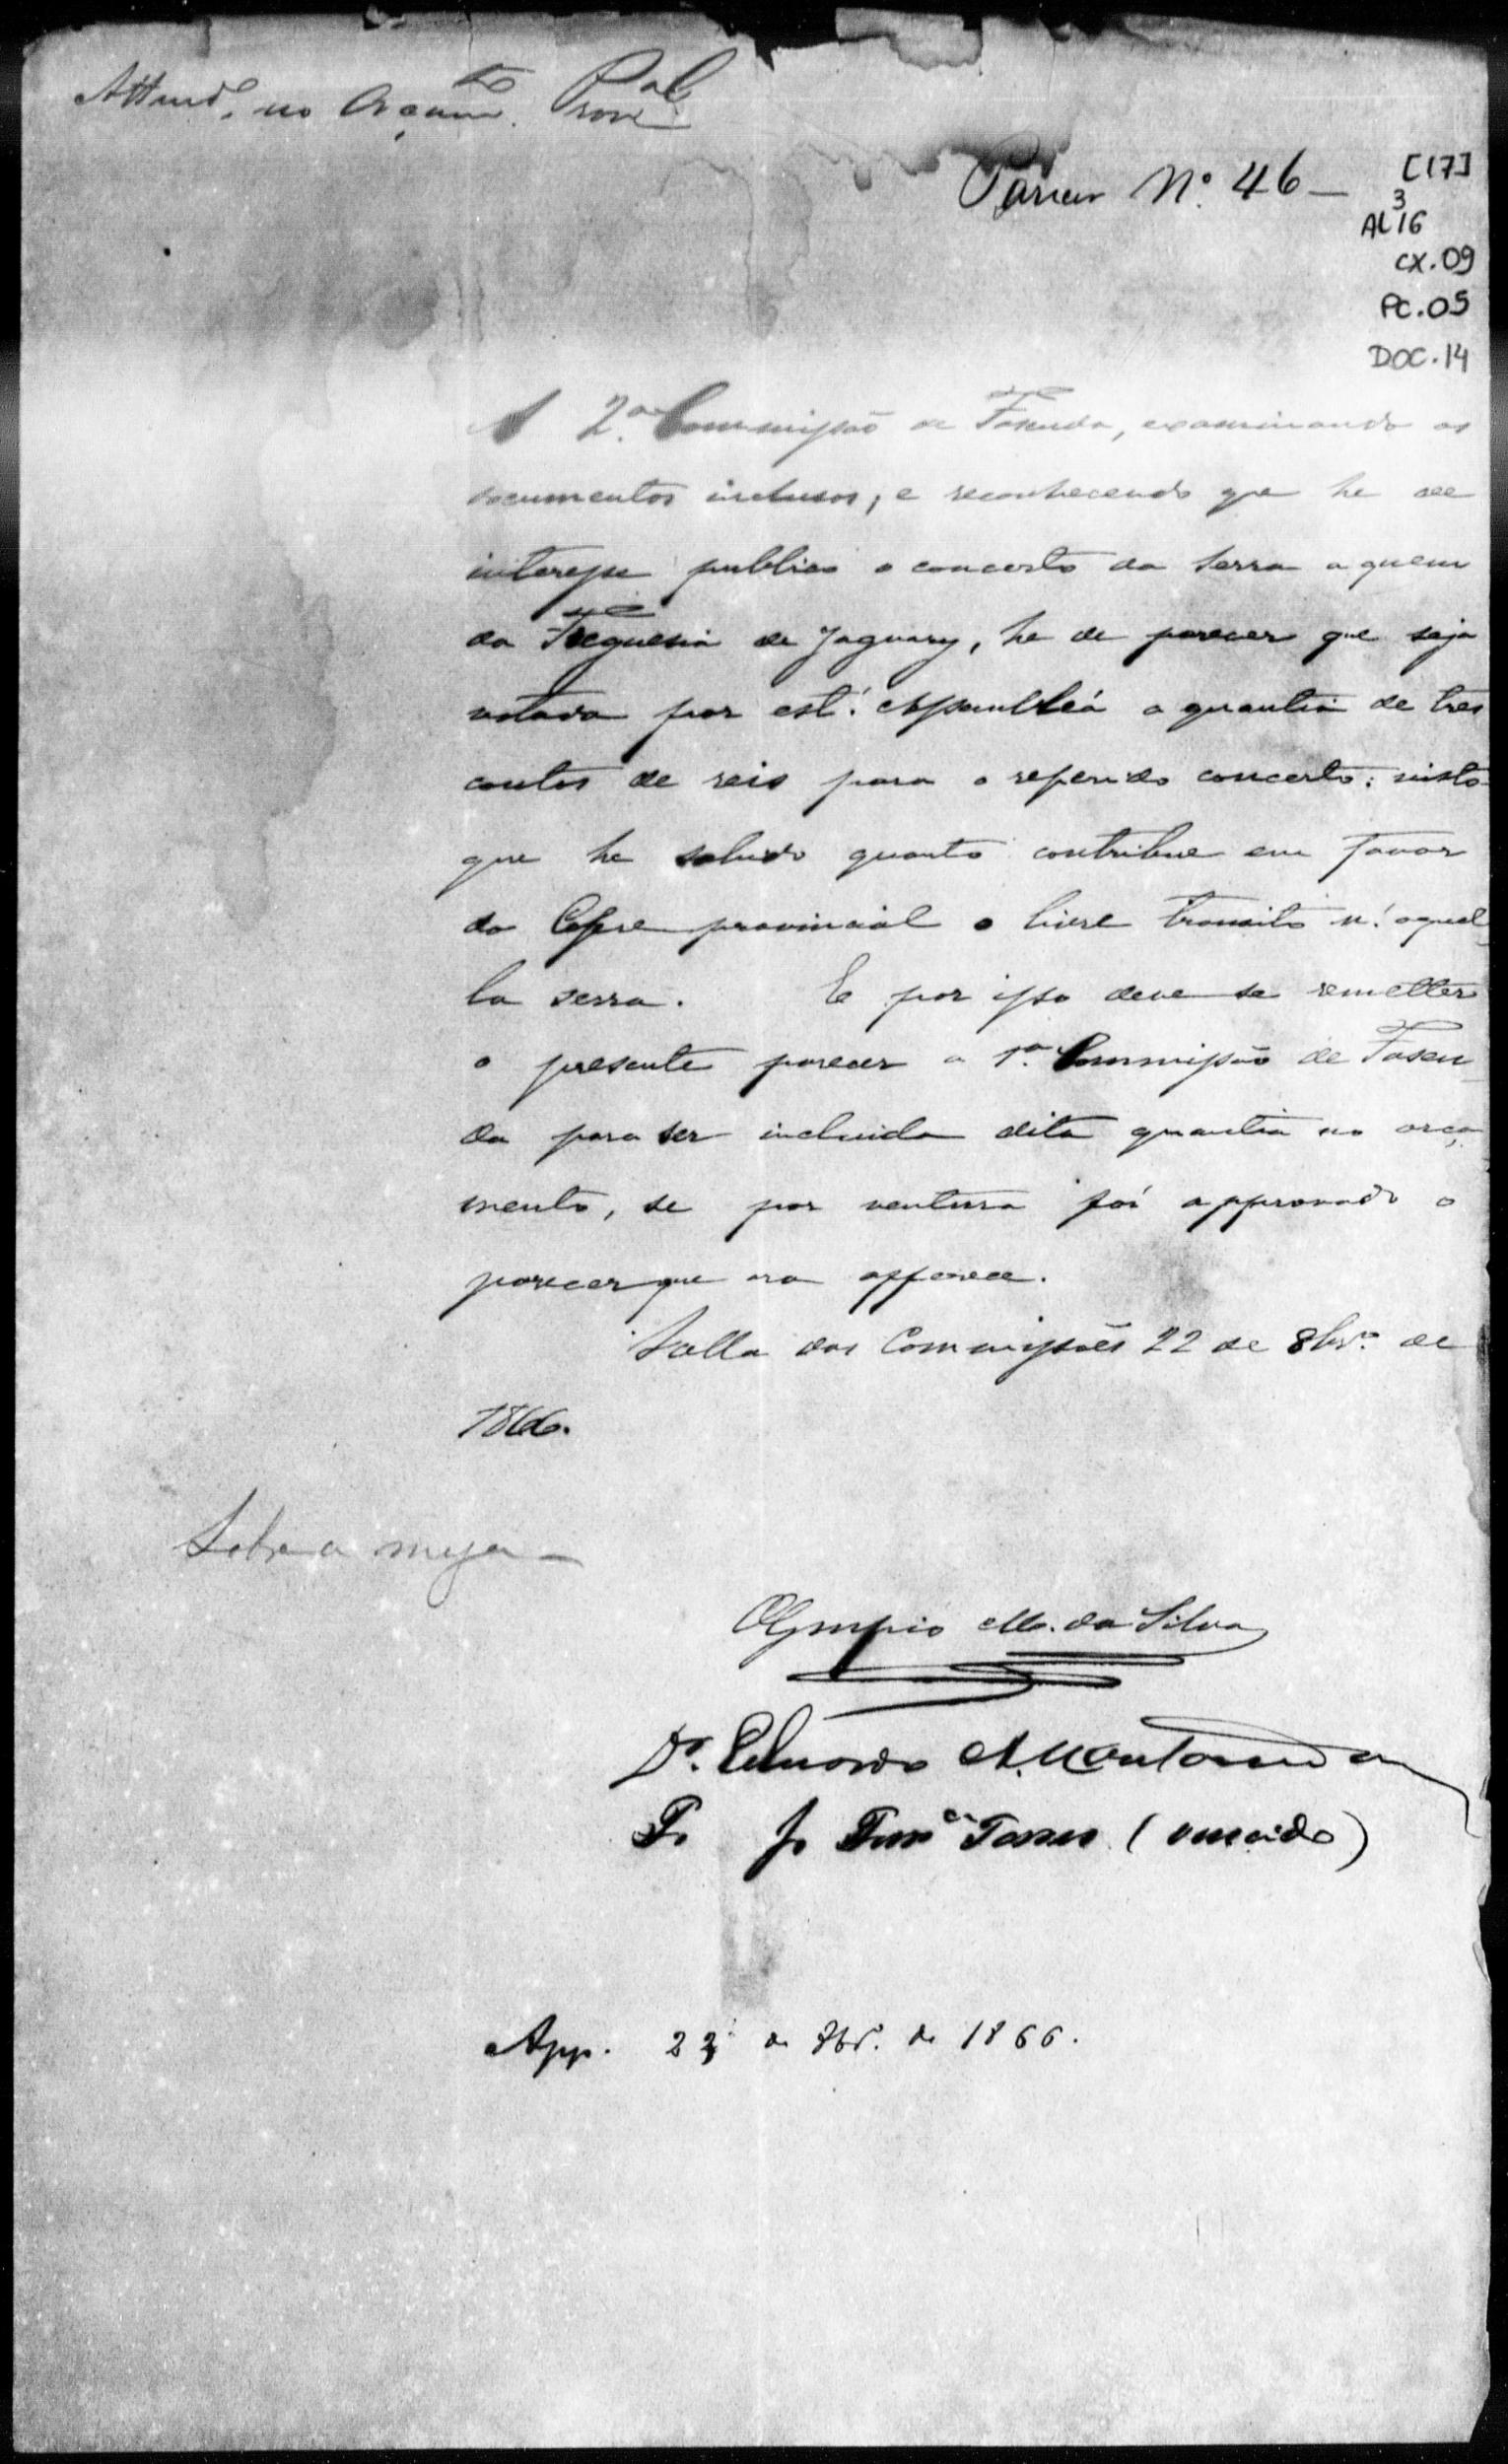 Attend.e no Orçam.to Prov.al
Parecer Nº 46 –
[17]
3
AL 16
CX.09
PC.05
DOC.14
A 2.a Commissão de Fasenda, examinando os
documentos inclusos, e reconhecendo que he de
interesse publico o concerto da Serra a quem
da Freguesia de Jaguary, he de parecer que seja
votada por est'Assembléa a quantia de tres
contos de reis para o referido concerto; visto
que he sabido quanto contribue em favor
do Cofre provincial o livre transito n'aquel
la serra. E por isso deve se remetter
o presente parecer a 1.a Commissão de Fasen
da para ser incluida dita quantia no orça
mento, se por ventura fôr approvado o
parecer que ora offerece.
Salla das Commissões 22 de 8br.o de
1866.
Sobre a mesa –
Olympio M. da Silva
Dr. Eduardo A. Montandon
P. J. (vencido)
App. 23 de 8br.o de 1866.